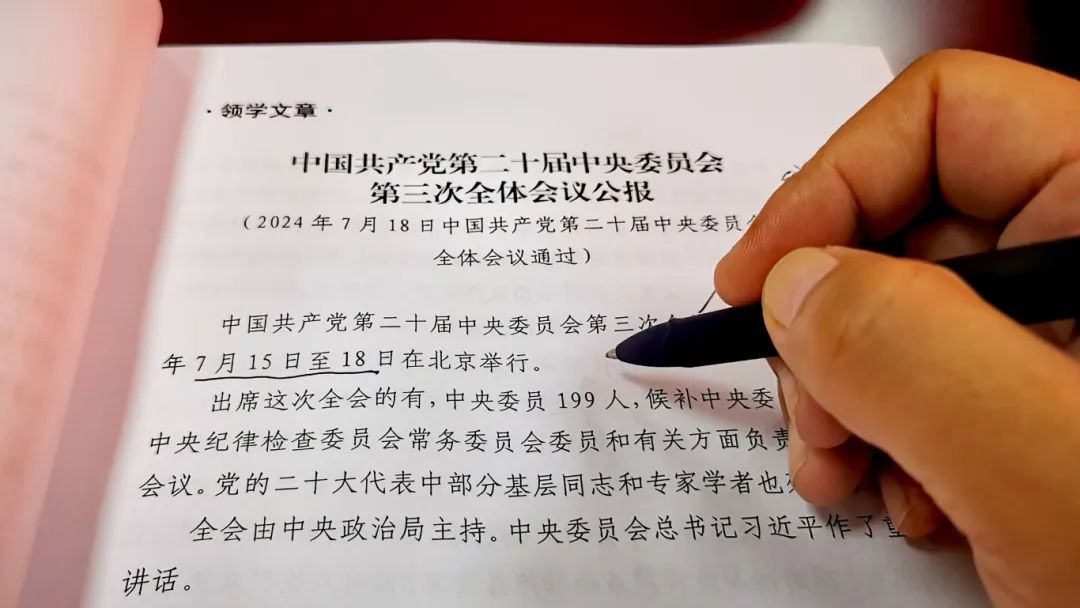 ·领学文章·
中国共产党第二十届中央委员会
第三次全体会议公报
(2024年7月18日中国共产党第二十届中央委员
全体会议通过)
中国共产党第二十届中央委员会第三次
年7月15日至18日在北京举行。
出席这次全会的有,中央委员199人,候补中央委
中央纪律检查委员会常务委员会委员和有关方面负责
会议。党的二十大代表中部分基层同志和专家学者也
全会由中央政治局主持。中央委员会总书记习近平作了重
讲话。